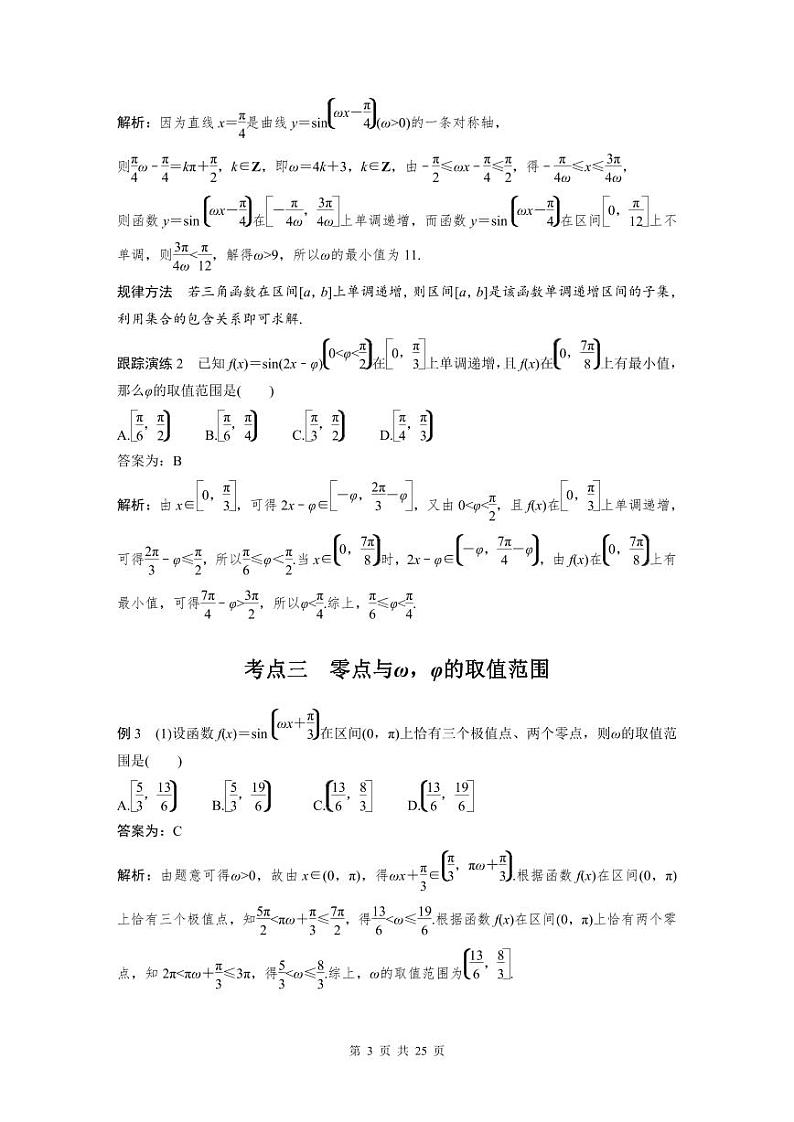 解析：因为直线 x＝π/4是曲线 y＝sin(ωx－π/4)(ω>0)的一条对称轴，
则π/4ω－π/4＝kπ＋π/2，k∈Z，即ω＝4k＋3，k∈Z，由－π/2≤ωx－π/4≤π/2，得－π/4ω≤x≤3π/4ω，
则函数 y＝sin(ωx－π/4)在[－π/4ω，3π/4ω]上单调递增，而函数 y＝sin(ωx－π/4)在区间[0，π/12]上不
单调，则3π/4ω<π/12，解得ω>9，所以ω的最小值为 11.
规律方法　若三角函数在区间[a，b]上单调递增，则区间[a，b]是该函数单调递增区间的子集，
利用集合的包含关系即可求解.
跟踪演练 2　已知 f(x)＝sin(2x－φ)(0<φ<π/2)在[0，π/3]上单调递增，且 f(x)在(0，7π/8)上有最小值，
那么φ的取值范围是(　　)
A.[π/6，π/2)　　B.[π/6，π/4)　　C.[π/3，π/2)　　D.[π/4，π/3)
答案为：B
解析：由 x∈[0，π/3]，可得 2x－φ∈[－φ，2π/3－φ]，又由 0<φ<π/2，且 f(x)在[0，π/3]上单调递增，
可得2π/3－φ≤π/2，所以π/6≤φ＜π/2.当 x∈(0，7π/8)时，2x－φ∈(－φ，7π/4－φ)，由 f(x)在(0，7π/8)上有
最小值，可得7π/4－φ>3π/2，所以φ<π/4.综上，π/6≤φ<π/4.
考点三　零点与ω，φ的取值范围
例 3　(1)设函数 f(x)＝sin(ωx＋π/3)在区间(0，π)上恰有三个极值点、两个零点，则ω的取值范
围是(　　)
A.[5/3，13/6)　　B.[5/3，19/6)　　C.(13/6，8/3]　　D.(13/6，19/6]
答案为：C
解析：由题意可得ω>0，故由 x∈(0，π)，得ωx＋π/3∈(π/3，πω＋π/3).根据函数 f(x)在区间(0，π)
上恰有三个极值点，知5π/2<πω＋π/3≤7π/2，得13/6<ω≤19/6.根据函数 f(x)在区间(0，π)上恰有两个零
点，知 2π<πω＋π/3≤3π，得5/3<ω≤8/3.综上，ω的取值范围为(13/6，8/3].
第 3 页 共 25 页